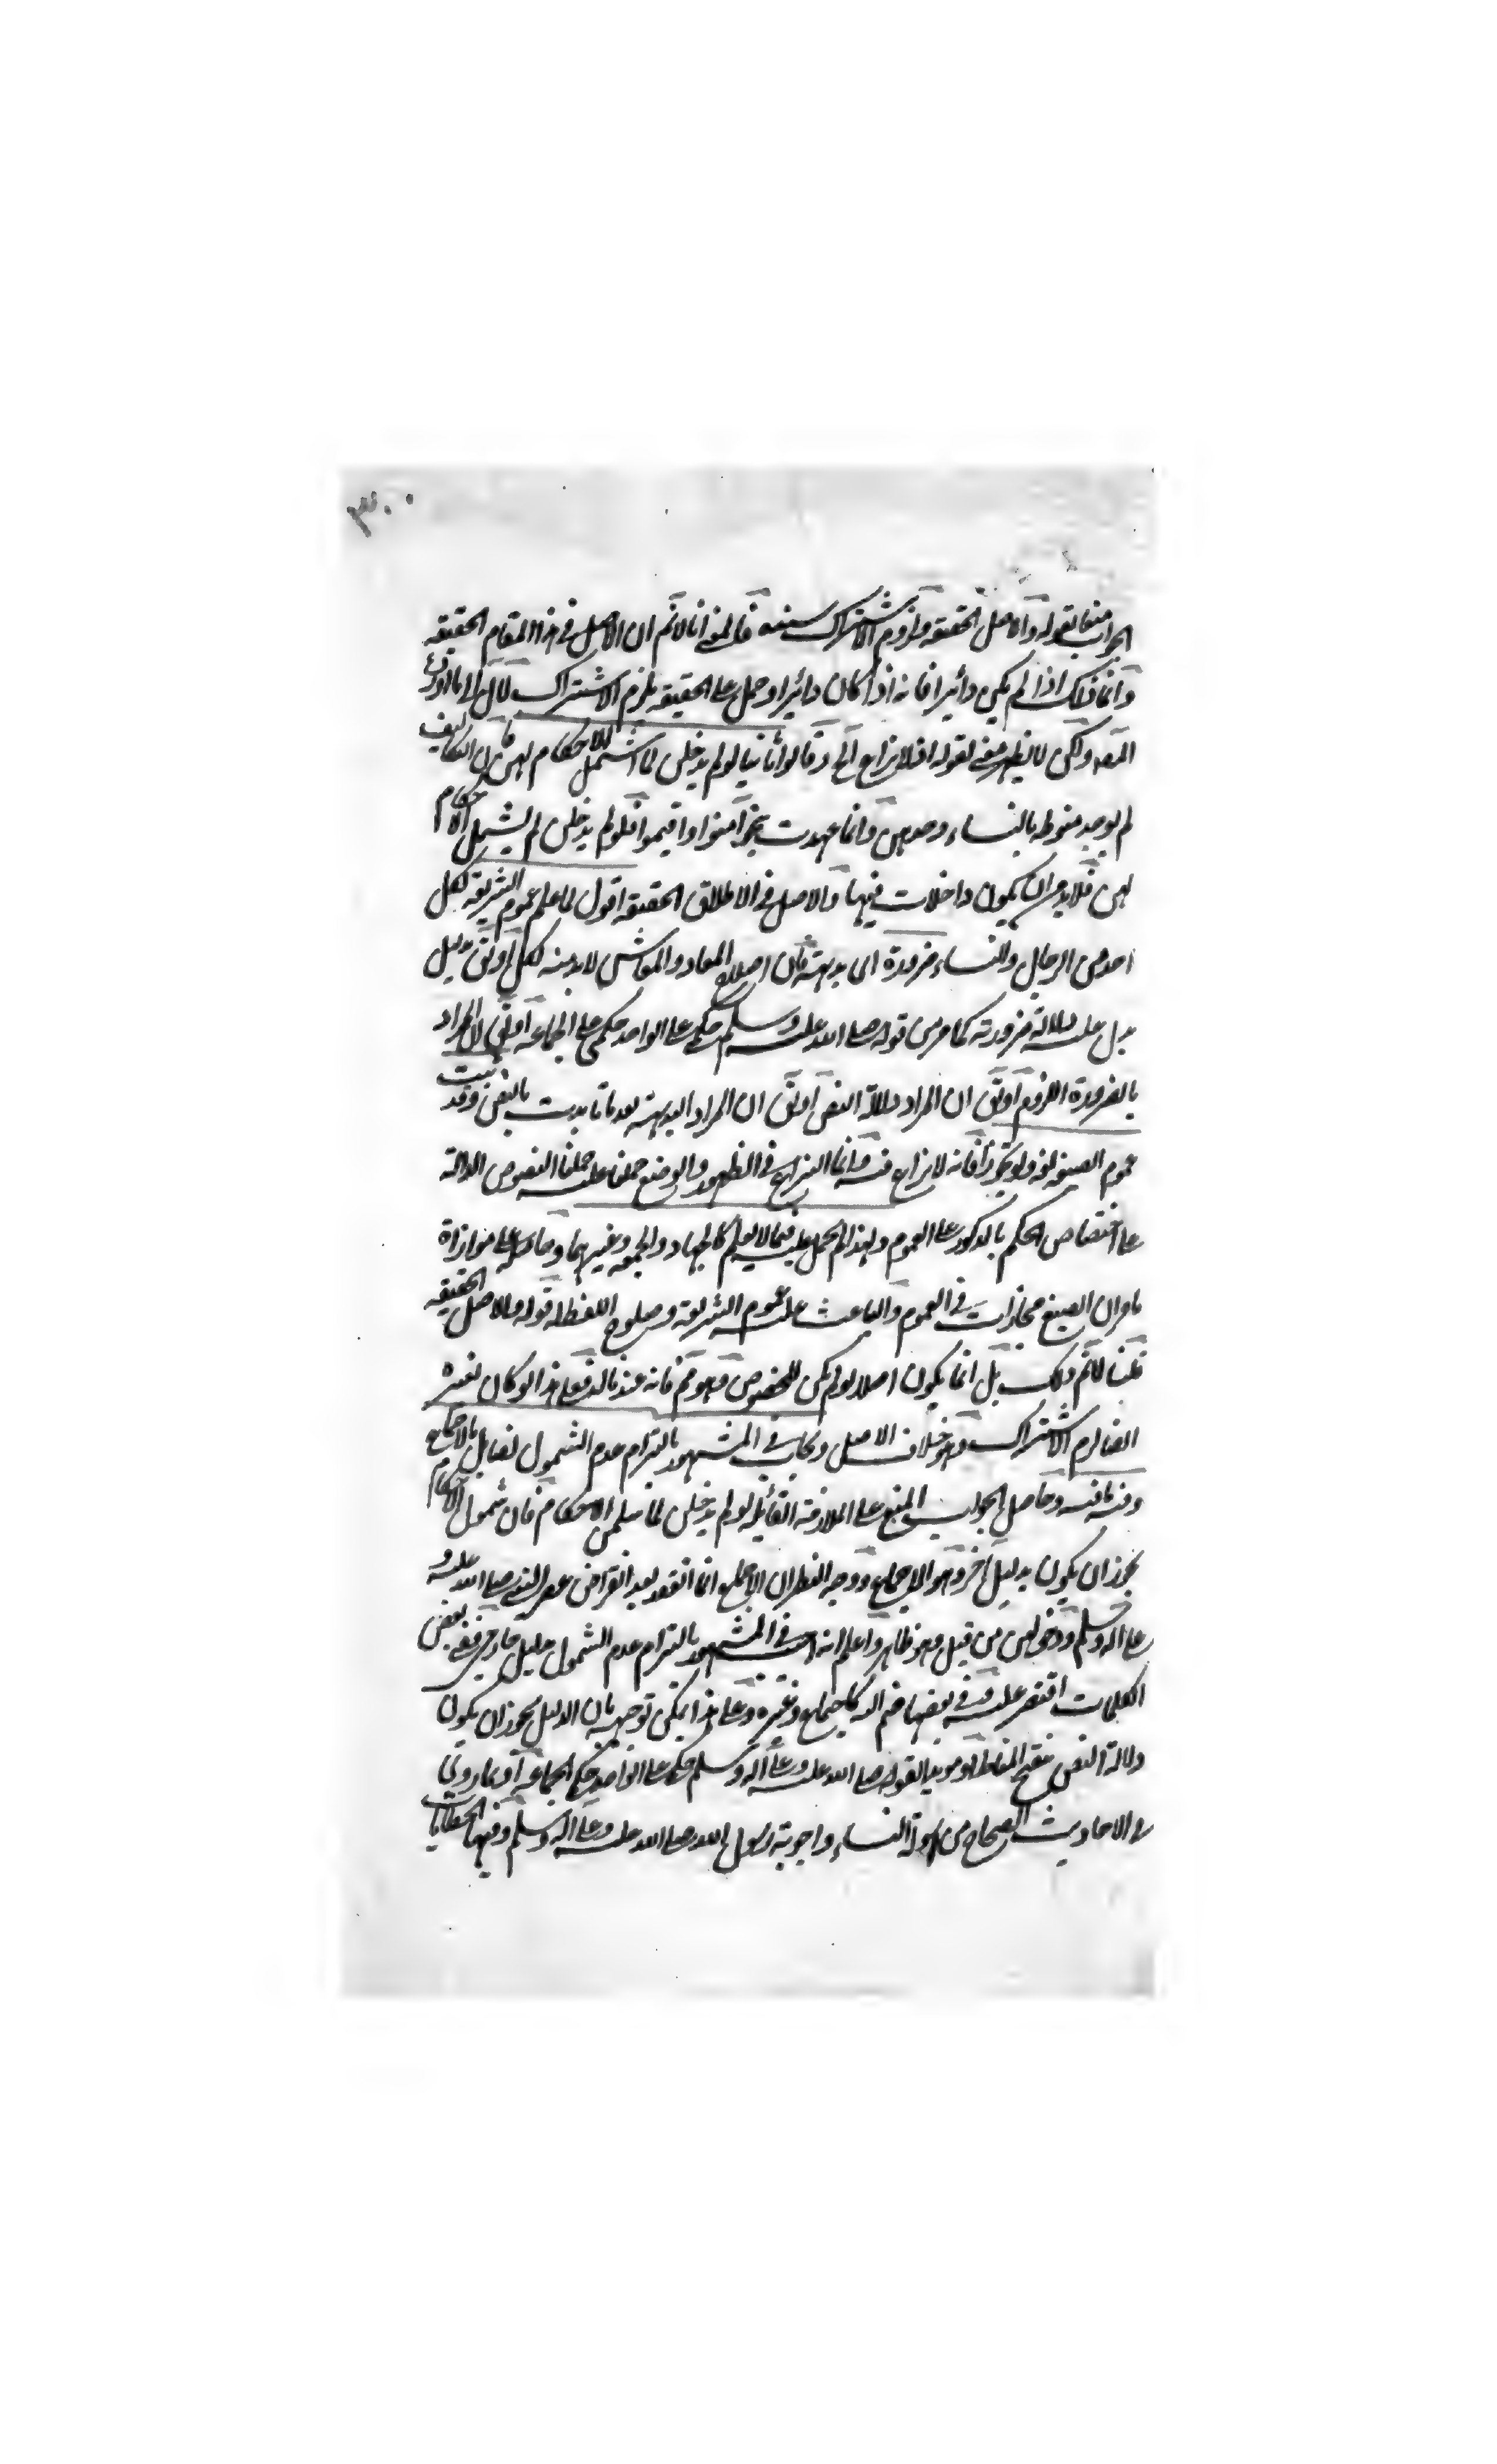 ٣٠٠
الجواب منعا بقوله والاصل الحقيقة ولزوم الاشتراك سنده فالمعنى انا لانم ان الاصل في هذا المقام الحقيقة
وانما ذلك اذا لم يكن دائرا فانه اذا كان دائرا وحمل على الحقيقة يلزم الاشتراك لآل الى ما اورد
المصـ ولكن لا يظهر معنى لقوله اذ لا نزاع الخ وقالوا ثانيا لو لم يدخلن لما شمل الاحكام لهن فان التكاليف
لم يوجد منوطة بالنساء وحدهن وانما عهدت بنحو آمنوا واقيموا فلو لم يدخلن لم يشمل الاحكام
لهن فلا بد من ان يكون داخلات فيها والاصل في الاطلاق الحقيقة اقول لما علم عموم الشريعة لكل
احد من الرجال والنساء ضرورة اى بديهة فان اصلاح المعاد والمعاش لا بد منه لكل اوثق دليل
يدل عليه دلالة ضرورية كما مر من قوله صلى الله عليه وسلم حكمي على الواحد حكمي على الجماعة اوثق لان المراد
بالضرورة اللزوم اوثق ان المراد دلالة النص اوثق ان المراد البديهة بعد ما تأيدت بالنص وقد ثبت
عموم الصيغ لغة ولو تجوزا فانه لا نزاع فيه وانما النزاع في الظهور والوضع حملنا عليه حملنا النصوص الدالة
على اختصاص الحكم بالذكور على العموم ولهذا لم يحمل عليه فيما لا يعلم كالجهاد والجمعة وغيرهما وحاصله على موازاة
ما مر ان الصيغ مجازات في العموم والباعث عليه عموم الشريعة وصلوح اللفظ له قوله والاصل الحقيقة
قلنا لانم ذلك بل انما يكون اصلا لو لم يكن للخصوص وهو مم فانه عندنا للدفع هذا لو كان لغيره
ايضا لزم الاشتراك وهو خلاف الاصل ويجاب في المشهور بالتزام عدم الشمول لهن بل بالاجماع
وفيه ما فيه وحاصل الجواب المنع على الملازمة القائلة لو لم يدخلن لما شملهن الاحكام فان شمول الاحكام
يجوز ان يكون بدليل آخر وهو الاجماع ووجه النظر ان الاجماع انما انعقد بعد انقراض عصر النبي صلى الله عليه و
على اله وسلم ودخولهن من قبل وهو ظاهر واعلم انه في المشهور بالتزام عدم الشمول بدليل خارجي ففي بعض
الكلمات اقتصر عليه وفي بعضها ضم اليه كاجماع وغيره وعلى هذا يمكن توجيهه بان الدليل يجوز ان يكون
دلالة النص بتنقيح المناط او مؤيدا لقوله صلى الله عليه وعلى اله وسلم حكمي على الواحد حكمي على الجماعة او بما روي
في الاحاديث الصحاح من اسولة النساء واجوبة رسول الله صلى الله عليه وعلى اله وسلم وفيها الخطابات